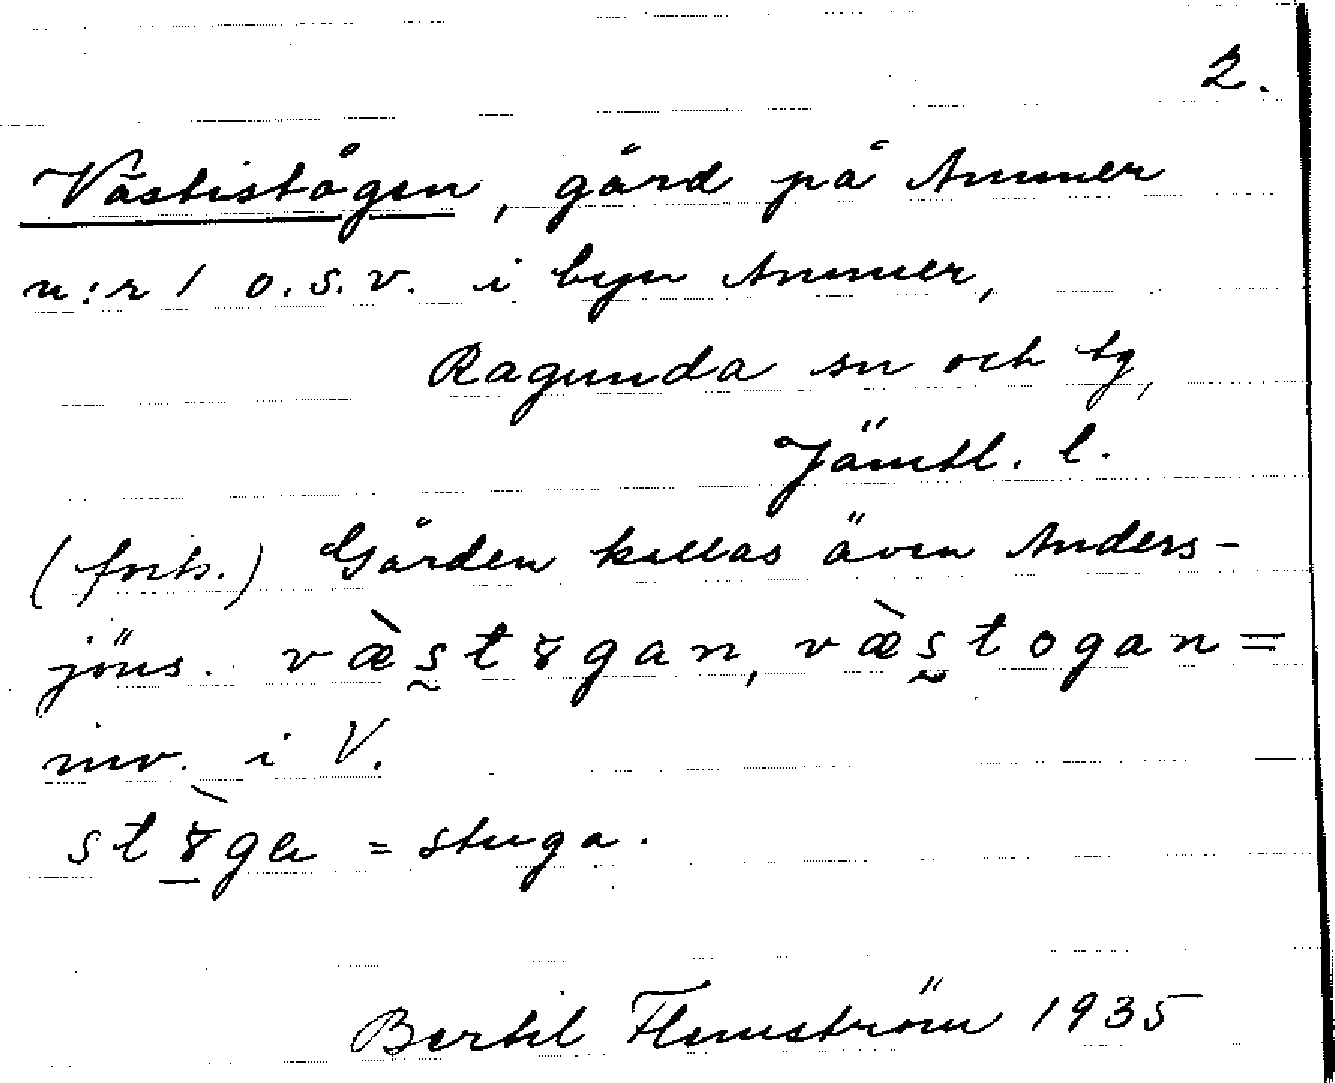 2.
Västistågen, gård på Ammer
n:r 1 o.s.v. i byn Ammer,
Ragunda sn och tg,
Jämtl. l.
(forts.) Gården kallas även Anders-
jöns. væ̀s̰tɤgan, væ̀s̰togan =
inv. i V.
stɤ̱̀ga = stuga.
Bertil Flemström 1935